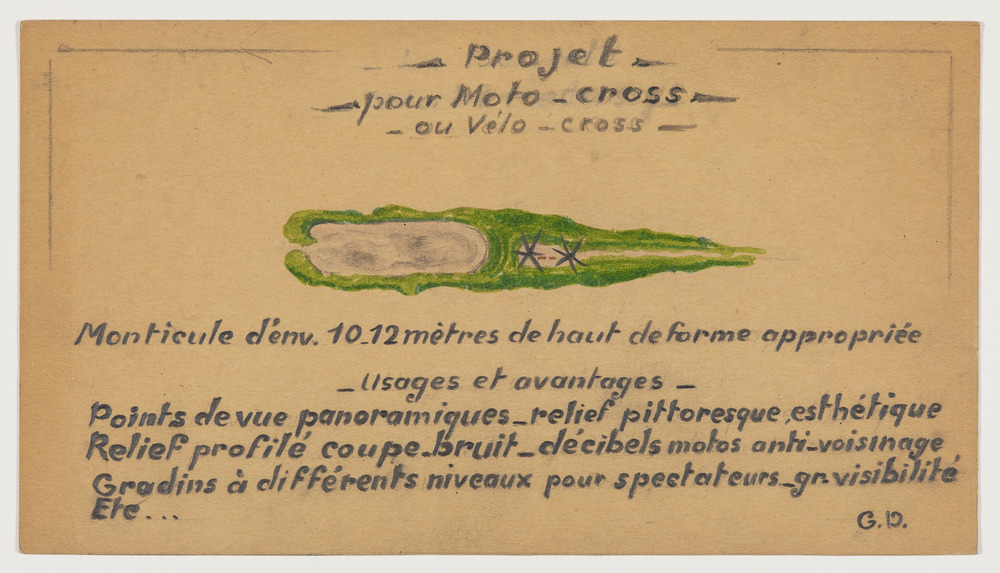 Projet
pour Moto-cross
- ou Vélo-cross -
Monticule d'env. 10-12 mètres de haut de forme appropriée
- Usages et avantages -
Points de vue panoramiques - relief pittoresque, esthétique
Relief profilé coupe-bruit - décibels motos anti-voisinage
Gradins à différents niveaux pour spectateurs - gr. visibilité
Etc...
G.D.